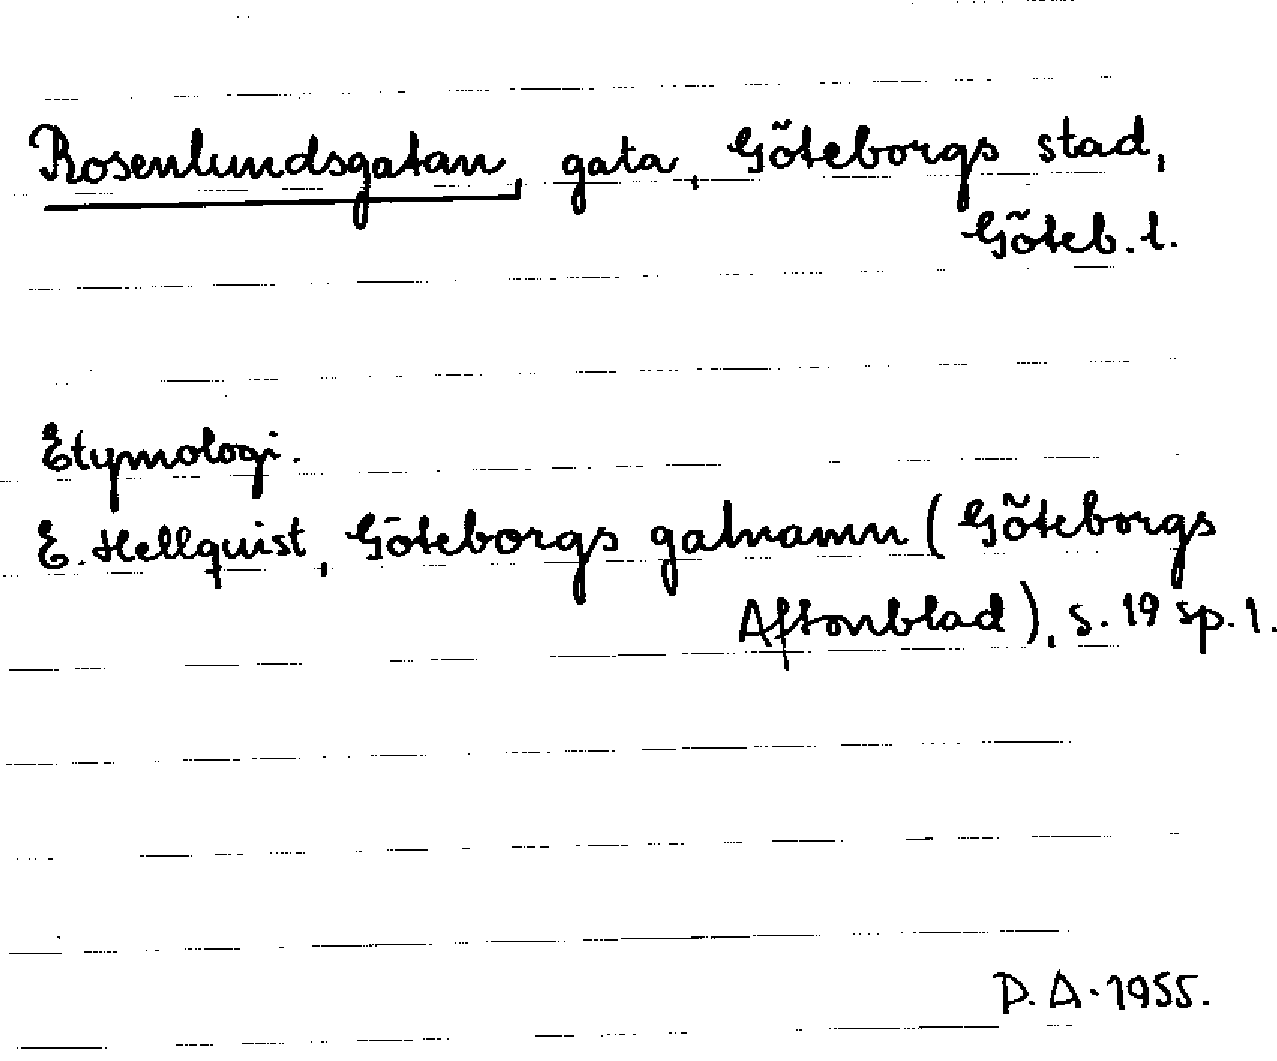 Rosenlundsgatan, gata, Göteborgs stad,
Göteb. l.
Etymologi.
E. Hellquist, Göteborgs gatnamn (Göteborgs
Aftonblad), s. 19 sp. 1.
P. A. 1955.